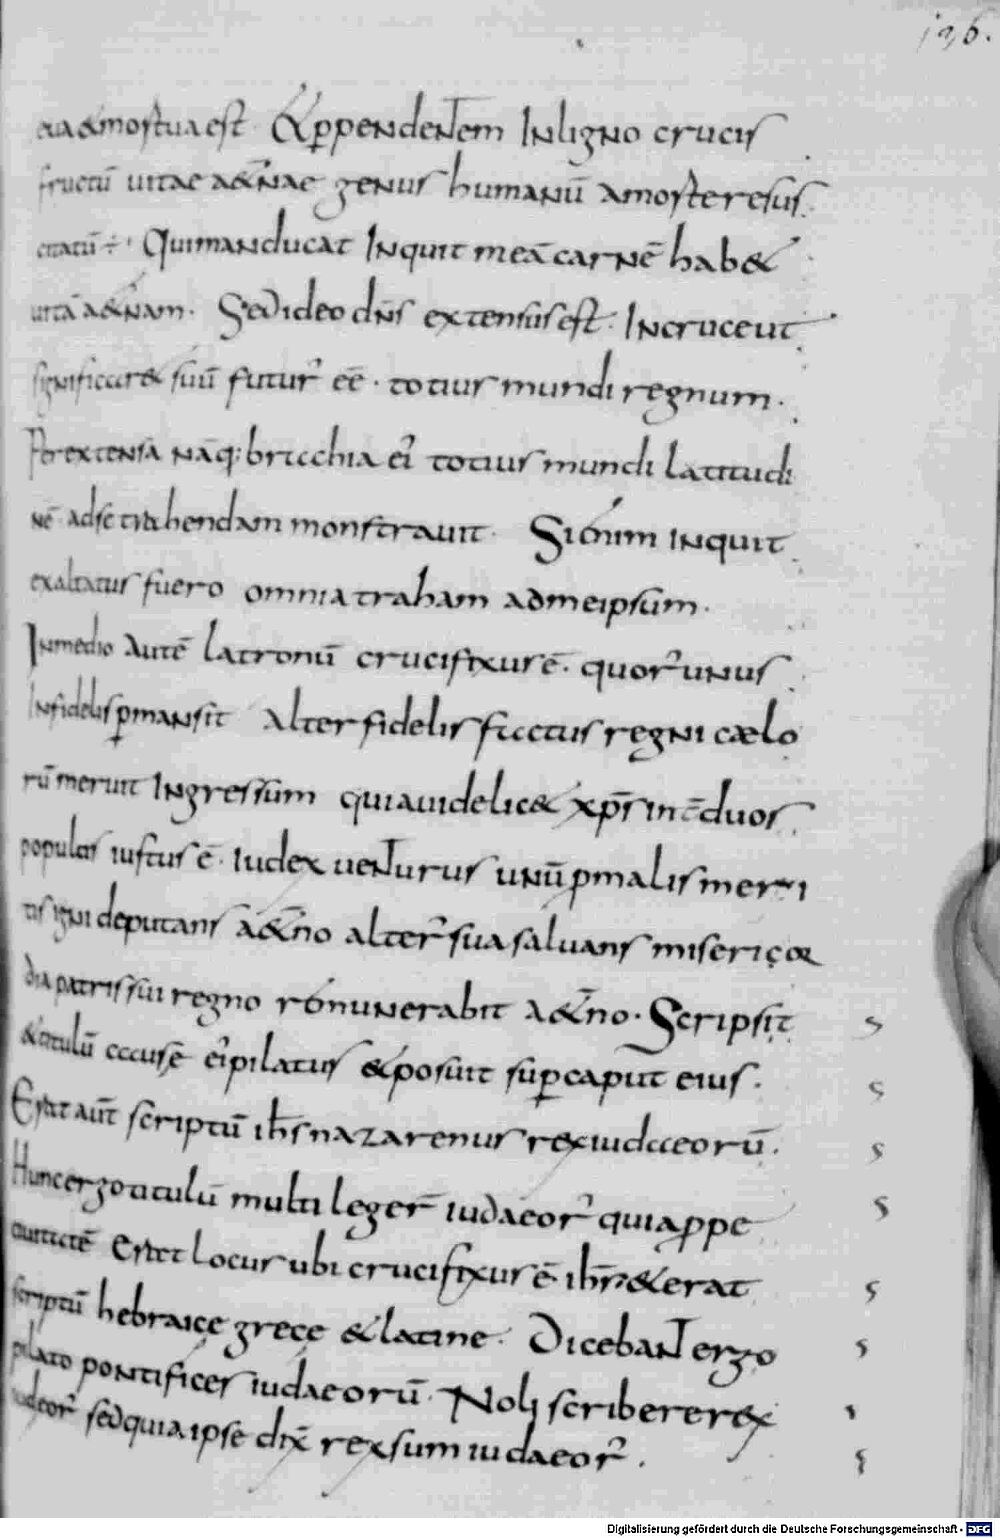 136.
eua & mortua est. & ꝑ pendentem in ligno crucis
fructū uitae aet̄nae genus humanū a morte resus
citatū ÷. Qui manducat inquit meā carnē hab&
uitā a&ernam. Sed ideo dn̄s extensus est. In cruce ut
significar& suū futur̄ eē. totius mundi regnum.
Per extensa naq: bracchia ei' totius mundi latitudi
nē ad se trahendam monstrauit. Si enim inquit
exaltatus fuero omnia traham ad me ipsum.
In medio autē latronū crucifixus ē. quor̄ unus
Infidelis ꝑmansit alter fidelis factus regni cælo
rū meruit ingressum quia uidelic& xp̄s int̄ duos
populos iustus ē. iudex uenturus unū ꝓ malis meri
tis igni deputans a&n̄o alter̄ sua saluans misericor
dia patris sui regno remunerabit a&n̄o. Scripsit
& titulū causę ei' pilatus & posuit suꝑ caput eius.
Erat aut̄ scriptū ih̄s nazarenus rex iudaeorū.
Hunc ergo titulū multi leger̄ iudaeor̄ quia ꝓpe
ciuitatē erat locus ubi crucifixus ē ih̄s & erat
scriptū hebraice grece & latine. Dicebant ergo
pilato pontifices iudaeorū. Noli scribere rex
iudeor̄ sed quia ipse dix̄ rex sum iudaeor̄.
Digitalisierung gefördert durch die Deutsche Forschungsgemeinschaft - DFG